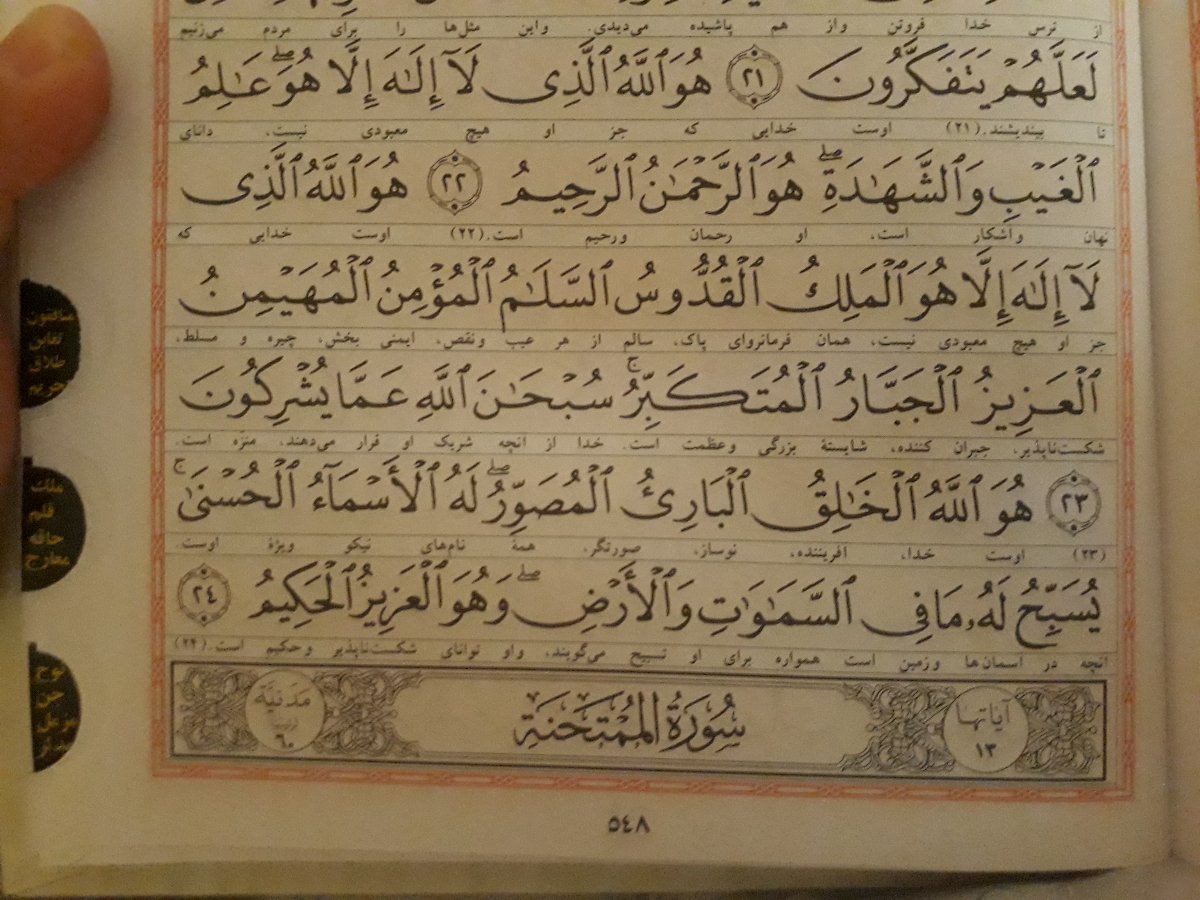 از ترس خدا فروتن واز هم پاشیده می‌دیدی. واین مثل‌ها را برای مردم می‌زنیم
لَعَلَّهُمْ يَتَفَكَّرُونَ ﴿٢١﴾ هُوَ ٱللَّهُ ٱلَّذِى لَآ إِلَـٰهَ إِلَّا هُوَ ۖ عَـٰلِمُ
تا بیندیشند.(۲۱) اوست خدایی که جز او هیچ معبودی نیست، دانای
ٱلْغَيْبِ وَٱلشَّهَـٰدَةِ ۖ هُوَ ٱلرَّحْمَـٰنُ ٱلرَّحِيمُ ﴿٢٢﴾ هُوَ ٱللَّهُ ٱلَّذِى
نهان وآشکار است، او رحمان ورحیم است.(۲۲) اوست خدایی که
لَآ إِلَـٰهَ إِلَّا هُوَ ٱلْمَلِكُ ٱلْقُدُّوسُ ٱلسَّلَـٰمُ ٱلْمُؤْمِنُ ٱلْمُهَيْمِنُ
جز او هیچ معبودی نیست، همان فرمانروای پاک، سالم از هر عیب ونقص، ایمنی بخش، چیره و مسلط،
ٱلْعَزِيزُ ٱلْجَبَّارُ ٱلْمُتَكَبِّرُ ۚ سُبْحَـٰنَ ٱللَّهِ عَمَّا يُشْرِكُونَ
شکست‌ناپذیر، جبران کننده، شایستهٔ بزرگی وعظمت است. خدا از آنچه شریک او قرار می‌دهند، منزّه است.
﴿٢٣﴾ هُوَ ٱللَّهُ ٱلْخَـٰلِقُ ٱلْبَارِئُ ٱلْمُصَوِّرُ ۖ لَهُ ٱلْأَسْمَآءُ ٱلْحُسْنَىٰ ۚ
(۲۳) اوست خدا، آفریننده، نوساز، صورتگر، همهٔ نام‌های نیکو ویژهٔ اوست.
يُسَبِّحُ لَهُۥ مَا فِى ٱلسَّمَـٰوَٰتِ وَٱلْأَرْضِ ۖ وَهُوَ ٱلْعَزِيزُ ٱلْحَكِيمُ ﴿٢٤﴾
آنچه در آسمان‌ها وزمین است همواره برای او تسبیح می‌گویند، واو توانای شکست‌ناپذیر وحکیم است.(۲۴)
آیاتها
١٣
سُورَةُ المُمْتَحَنَةِ
مَدَنِيَّة
٦٠
٥٤٨
منافقون
تغابن
طلاق
تحریم
ملک
قلم
حاقه
معارج
نوح
جن
مزمل
مدثر